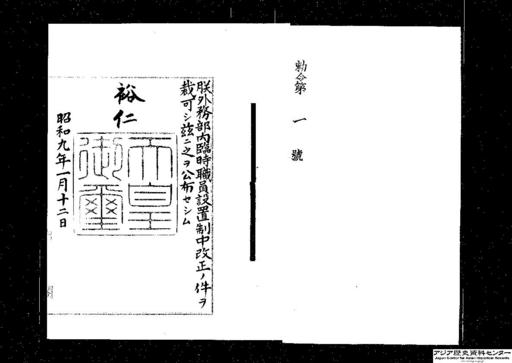 勅令第一號
朕外務部內臨時職員設置制中改正ノ件ヲ
裁可シ玆ニ之ヲ公布セシム
裕仁
天皇
御璽
昭和九年一月十二日
アジア歴史資料センター
Japan Center for Asian Historical Records